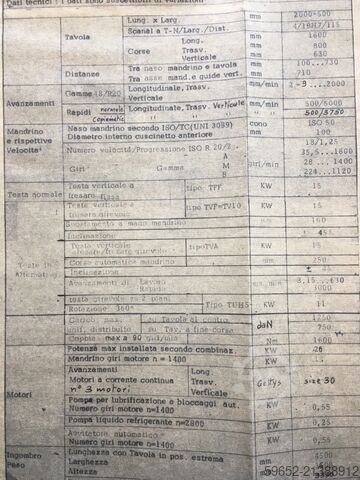 Dati tecnici: I dati sono suscettibili di variazioni
Tavola Lung. x Larg. mm 2000×500
Scanali a T-N/Larg./Dist. 4/18H7/115
Corse Long. mm 1600
Trasv. mm 800
Verticale mm 630
Distanze Tra naso mandrino e tavola mm 100...730
Tra asse mand. e guide vert. mm 710
Avanzamenti Gamme 18/R20 Longitudinale, Trasv. Verticale mm/min 2-9...2000
Rapidi normale Longitudinale, Trasv. Verticale mm/min 500/6000
Copiomatic " " " 500/5750
Mandrino e rispettive Velocità Naso mandrino secondo ISO/TC(UNI 3089) cono ISO 50
Diametro interno cuscinetto anteriore mm 100
Numero velocità/Progressione ISO R 20/3 18/1,25
Giri Gamma A giri/min 35,5...1800
M 28...1400
B 224...1120
Testa normale Testa verticale a fresare fissa tipo TFF KW 15
Testa verticale a fresare girevole tipo TVF=TV10 KW 15
Spostamento a mano mandrino mm 160
Inclinazione ± 45°
Testa verticale tipo TVA KW 15
Corsa automatica mandrino mm 250
Inclinazione ± 45
Avanzamenti di Lavoro mm/min 3,15...630
Rapido 3000
Testa girevole su 2 piani
Rotazione 360° Tipo TUH5 KW 11
Carico max. su Tavola al centro daN 1250
unif. distribuito su Tav. a fine corsa 750
Coppia max a 90 giri/min Nm 1600
Motori Potenza max installata secondo combinaz. KW 26
Mandrino giri motore n = 1400 KW 15
Avanzamenti Long.
Motori a corrente continua Trasv. Gettys size 30
n° 3 motori Verticale
Pompa per lubrificazione e bloccaggi aut.
Numero giri motore n=1400 KW 0,55
Pompa liquido refrigerante n=2800 KW 0,25
Avvitatore automatico
Numero giri motore n=1400 KW 0,55
Ingombro Peso Lunghezza con Tavola in pos. estrema mm 4500
Larghezza mm
Altezza mm
59652-21388912